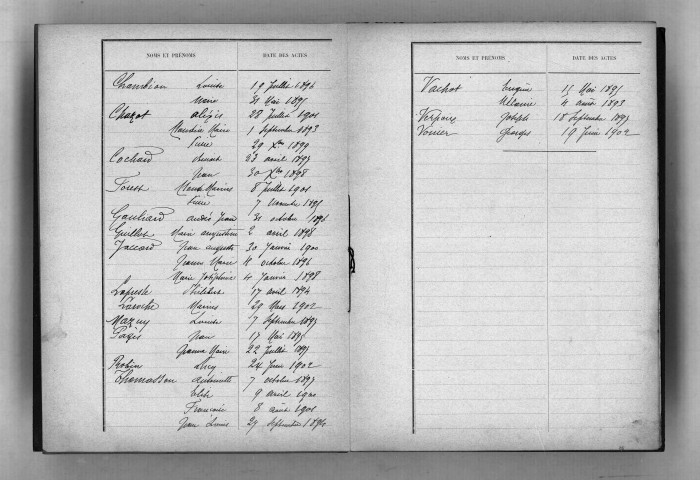 NOMS ET PRÉNOMS DATE DES ACTES
Chambion Louise 19 Juillet 1896
Marie 31 Mai 1895
Chazot Alexis 28 Juillet 1901
Claudia Marie 1 Septembre 1893
29 Xbre 1899
Cochard Benoit 27 avril 1897
Jean 30 Xbre 1898
Forest Marius 8 Juillet 1901
7 1895
Gouliard André Jean 31 octobre 1896
Guillot Marie augustine 2 avril 1898
Jaccard Jean auguste 30 Janvier 1900
Marie 4 octobre 1896
Marie Joséphine 4 Janvier 1898
Philibert 17 avril 1894
Laroche Marius 29 Mars 1902
Mazuy Louise 7 Septembre 1895
Pagès Jean 17 Mai 1895
Jeanne Marie 22 Juillet 1897
Robin 24 Juin 1902
Thomasson Antoinette 7 octobre 1897
9 avril 1900
Françoise 8 août 1901
Jean Louis 27 Septembre 1896
NOMS ET PRÉNOMS DATE DES ACTES
Vachot Eugène 15 Mai 1895
Mélanie 4 août 1893
Joseph 18 Septembre 1895
Voisier Georges 19 Juin 1902